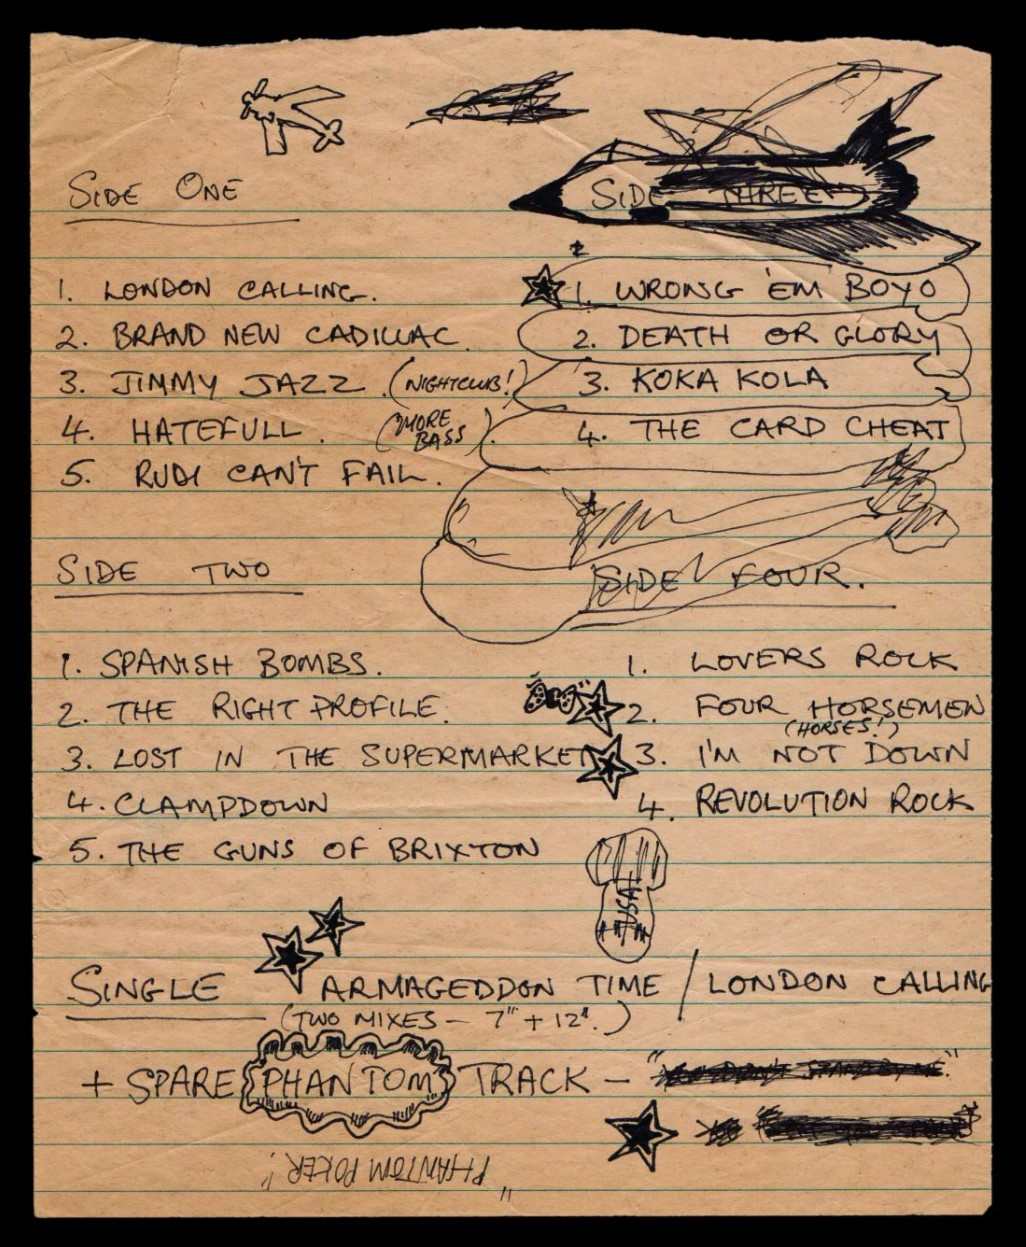 SIDE ONE
1. LONDON CALLING.
2. BRAND NEW CADILLAC.
3. JIMMY JAZZ. (NIGHTCLUB!)
4. HATEFULL. (MORE BASS)
5. RUDI CAN'T FAIL.
SIDE TWO
1. SPANISH BOMBS.
2. THE RIGHT PROFILE.
3. LOST IN THE SUPERMARKET
4. CLAMPDOWN
5. THE GUNS OF BRIXTON
SIDE THREE
1. WRONG 'EM BOYO
2. DEATH OR GLORY
3. KOKA KOLA
4. THE CARD CHEAT
SIDE FOUR.
1. LOVERS ROCK
2. FOUR HORSEMEN
(HORSES!)
3. I'M NOT DOWN
4. REVOLUTION ROCK
USA
SINGLE ARMAGEDDON TIME / LONDON CALLING
(TWO MIXES - 7" + 12".)
+ SPARE PHANTOM TRACK - " STAND BY ME."
"PHANTOM POKER!"